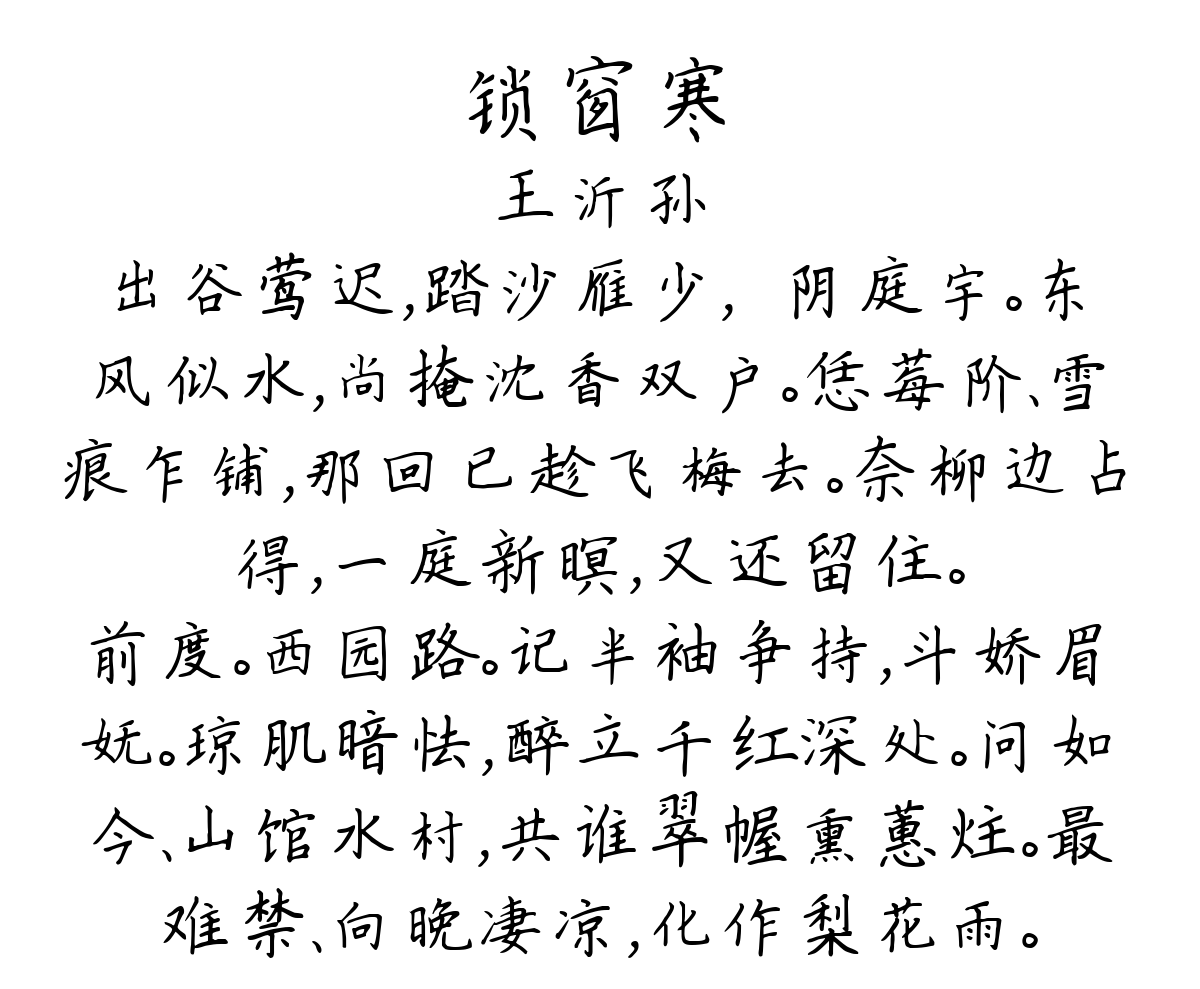 锁窗寒
王沂孙
出谷莺迟,踏沙雁少,阴庭宇。东
风似水,尚掩沈香双户。恁莓阶、雪
痕乍铺,那回已趁飞梅去。奈柳边占
得,一庭新暝,又还留住。
前度。西园路。记半袖争持,斗娇眉
妩。琼肌暗怯,醉立千红深处。问如
今、山馆水村,共谁翠幄熏蕙炷。最
难禁、向晚凄凉,化作梨花雨。